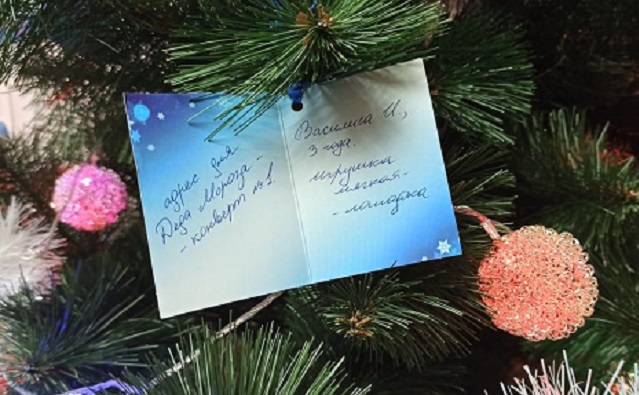 адрес для
Деда Мороза -
- конверт № 1.
Василиса И.,
3 года.
игрушка
мягкая -
- лошадка